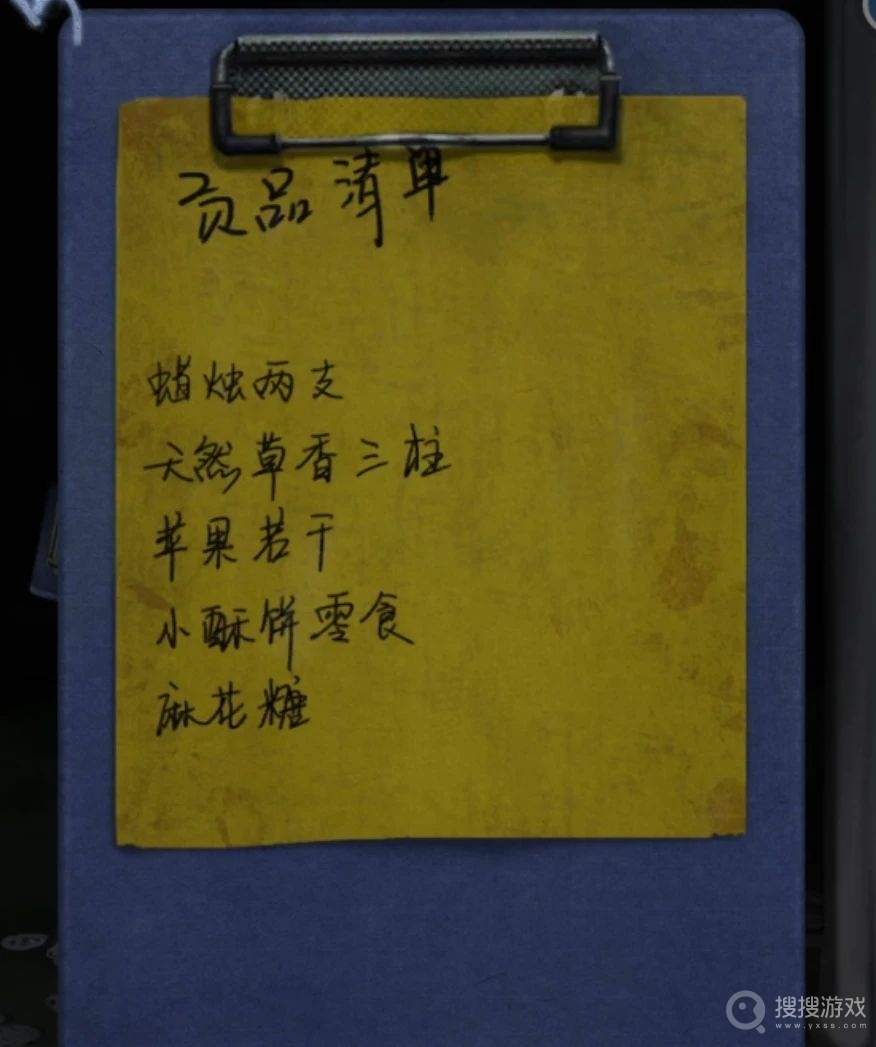 贡品清单
蜡烛两支
天然草香三柱
苹果若干
小酥饼零食
麻花糖
搜搜游戏
www.yxss.com